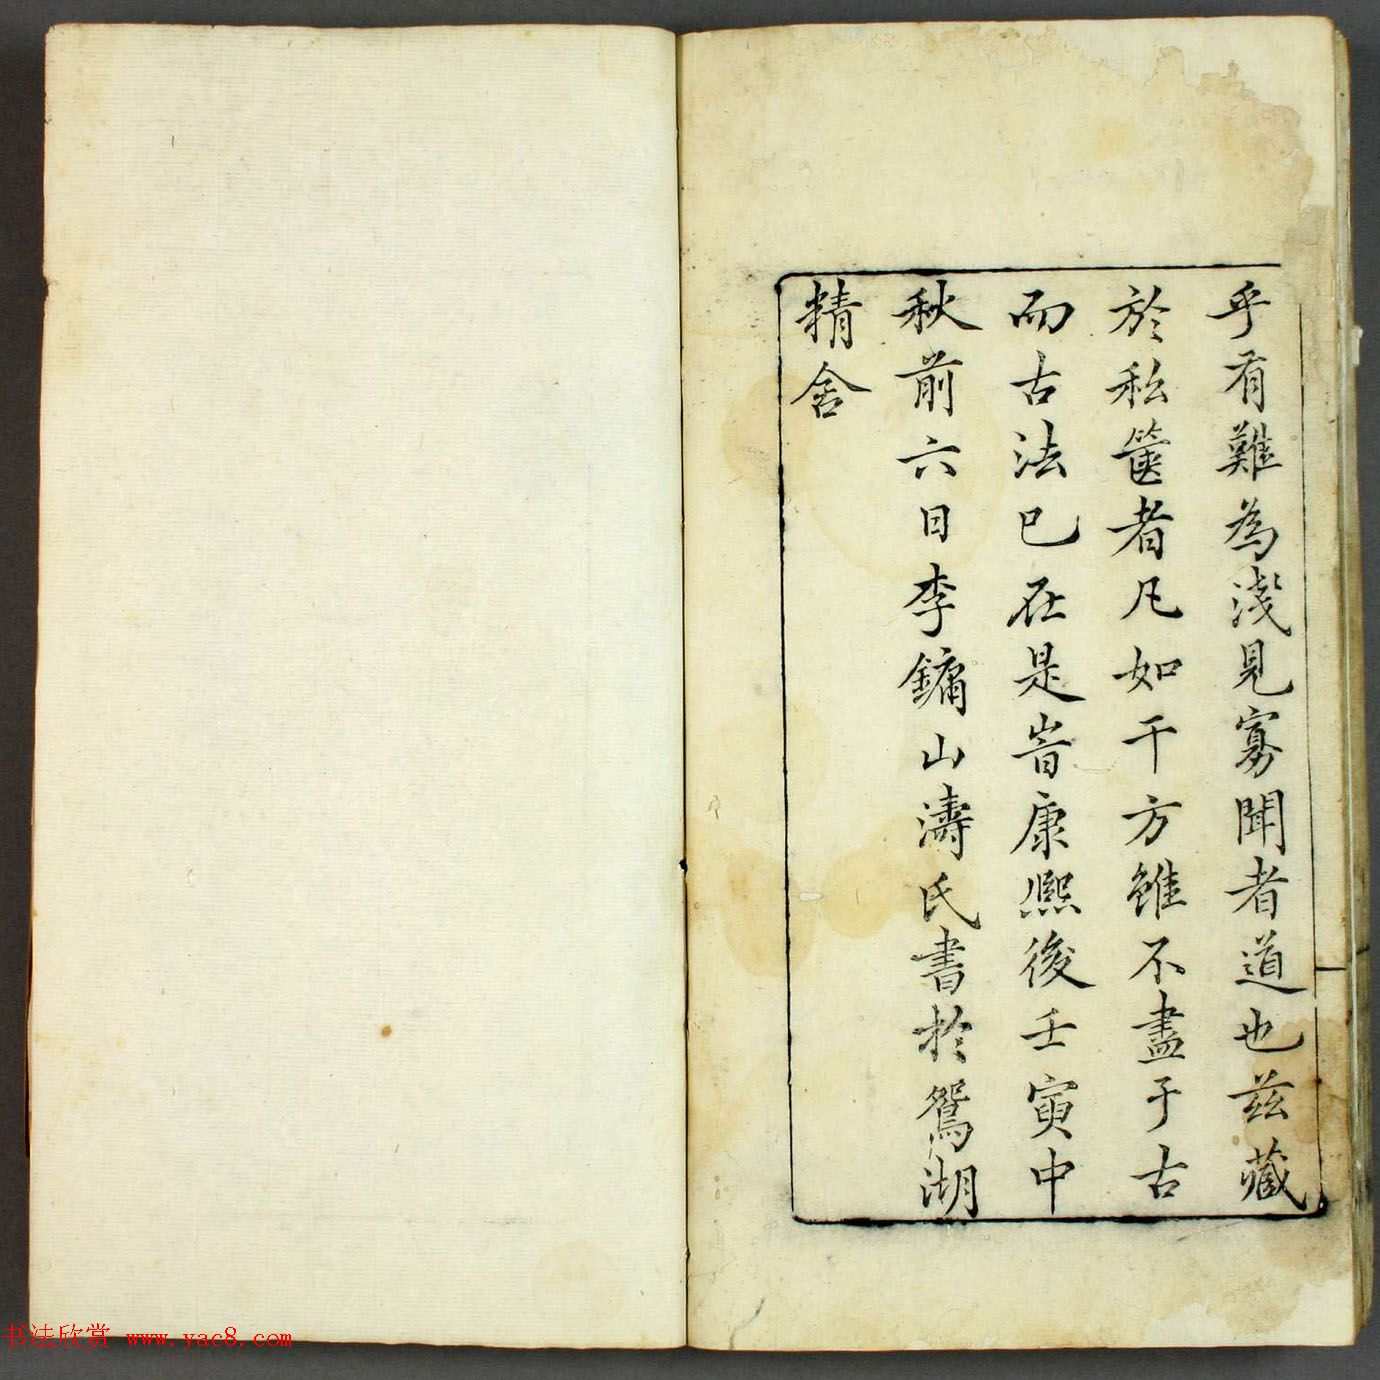 乎有難為淺見寡聞者道也兹藏
於私篋者凡如干方雖不盡于古
而古法已在是旹康熙後壬寅中
秋前六日李鏞山濤氏書於鴛湖
精舍
书法欣赏 www.yac8.com